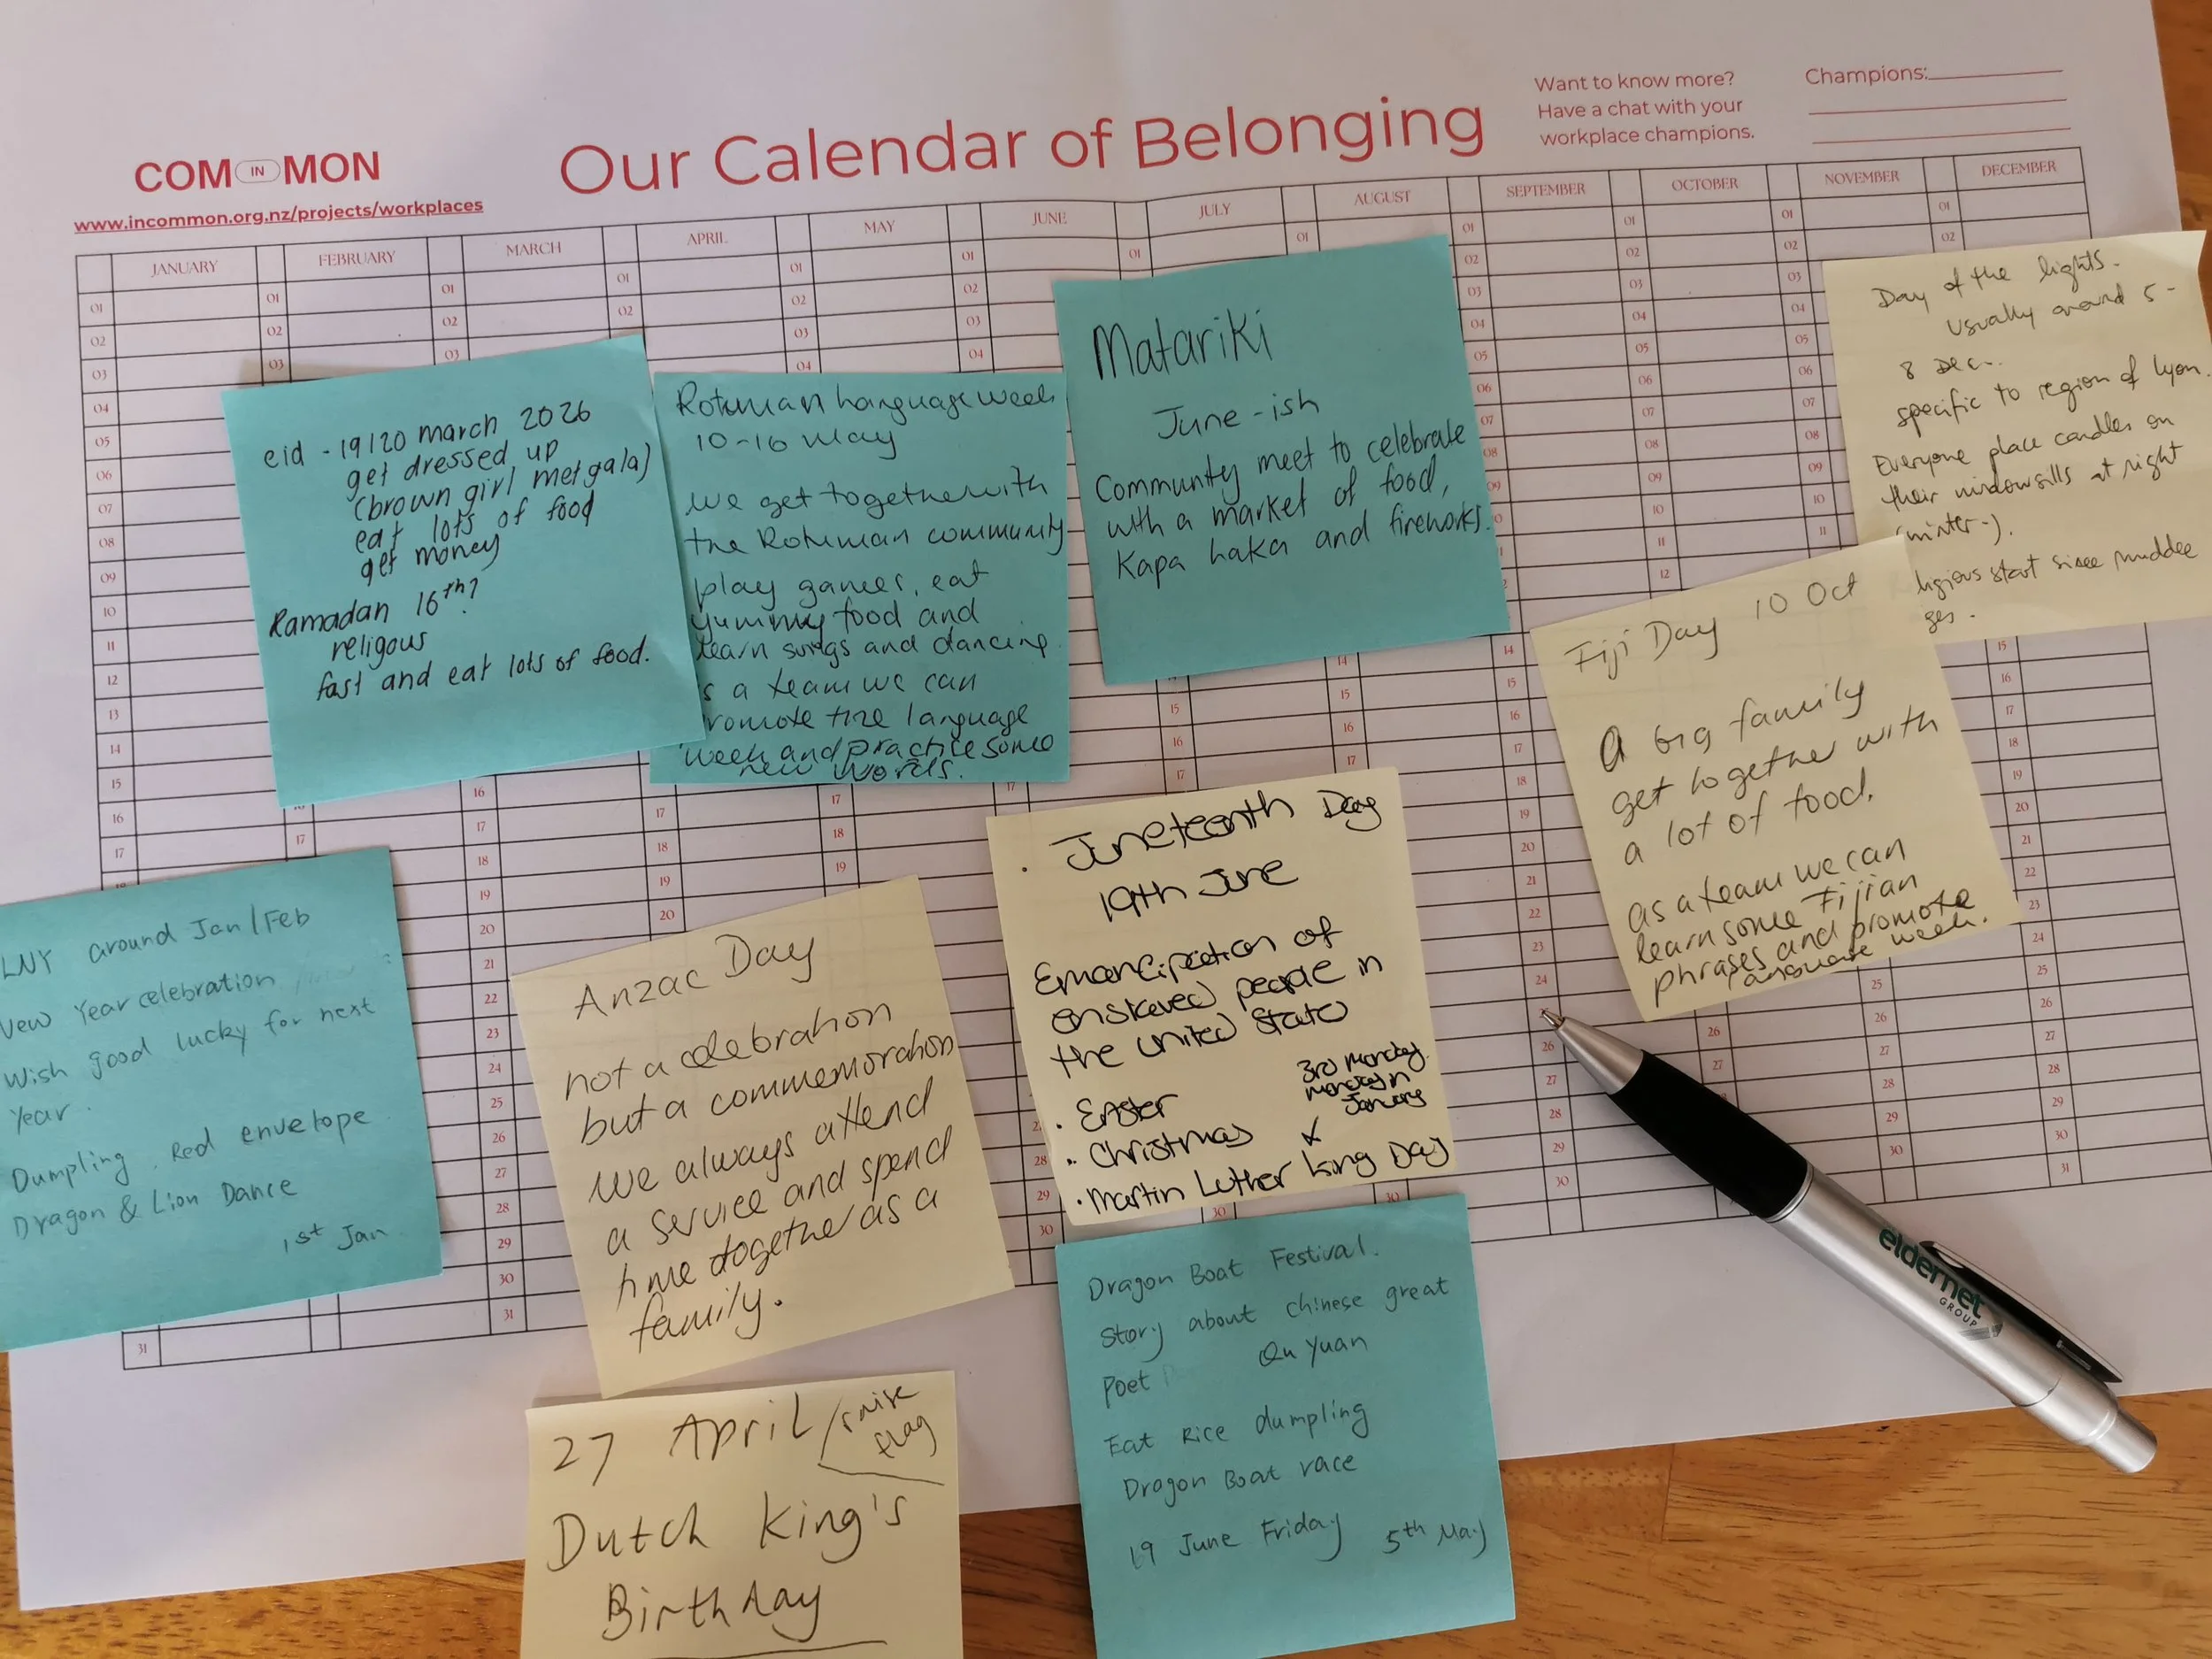 COM IN MON
www.incommon.org.nz/projects/workplaces
Our Calendar of Belonging
Want to know more?
Have a chat with your
workplace champions.
Champions:
JANUARY
FEBRUARY
MARCH
APRIL
MAY
JUNE
JULY
AUGUST
SEPTEMBER
OCTOBER
NOVEMBER
DECEMBER
eid - 19/20 march 2026
get dressed up
(brown girl met gala)
eat lots of food
get money
Ramadan 16th?
religous
fast and eat lots of food.
Rotuman Language week
10-16 May
we get together with
the Rotuman community
play games, eat
yummy food and
learn songs and dancing
s a team we can
romote the language
week and practice some
new words.
Matariki
June-ish
Community meet to celebrate
with a market of food,
Kapa haka and fireworks.
Day of the lights.
Usually around 5-
8 Dec.
specific to region of Lyon.
Everyone place candles on
their windowsills at night
(winter-).
ligious start since muddle
ges.
Fiji Day 10 Oct
A big family
get together with
a lot of food.
as a team we can
learn some Fijian
phrases and promote
language week.
LNY around Jan/Feb
New Year celebration
Wish good lucky for next
Year.
Dumpling, Red envelope
Dragon & Lion Dance
1st Jan
Anzac Day
not a celebration
but a commemoration
We always attend
a service and spend
time together as a
family.
· Juneteenth Day
19th June
Emancipation of
enslaved people in
the United State
· Easter
· Christmas &
3rd Monday
Monday in
January
· Martin Luther King Day
27 April / raise
flag
Dutch King's
Birthday
Dragon Boat Festival.
Story about Chinese great
Poet Qu Yuan
Eat Rice dumpling
Dragon Boat race
19 June Friday 5th May
eldernet
GROUP